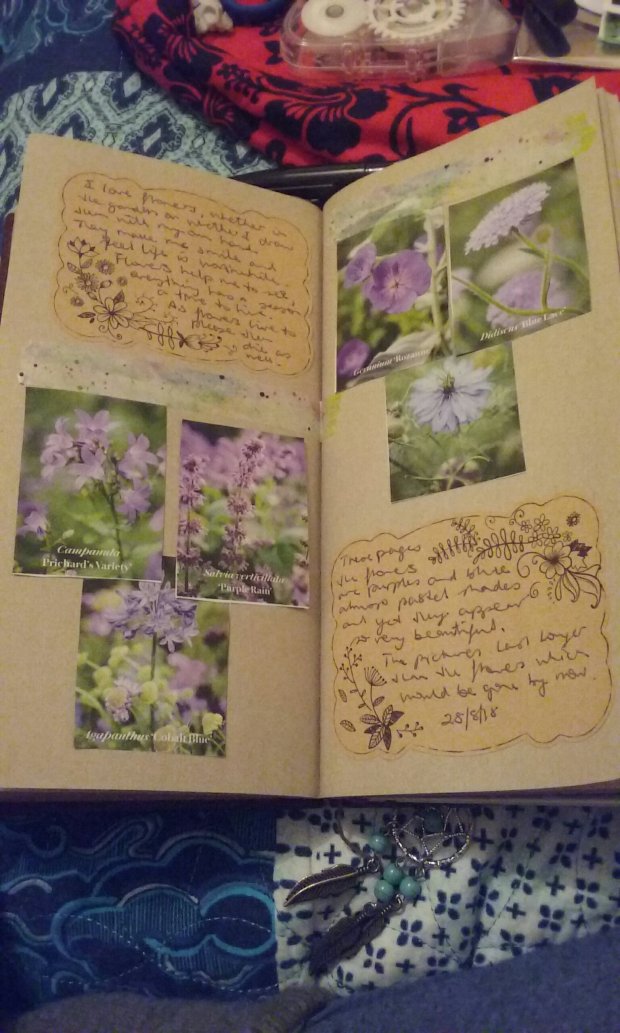 I love flowers, whether in
the garden or whether I draw
them with my own hand
They make me smile and
feel life is worthwhile.
Flowers help me to see
everything has a season
a time to live.
As flowers live to
please then
I die as
well.
Campanula
'Prichard's Variety'
Salvia verticillata
'Purple Rain'
Agapanthus 'Cobalt Blue'
Geranium 'Rozanne'
Didiscus 'Blue Lace'
These pages
the flowers
are purples and blue
almost pastel shades
and yet they appear
so very beautiful.
The pictures last longer
than the flowers which
would be gone by now
28/8/18